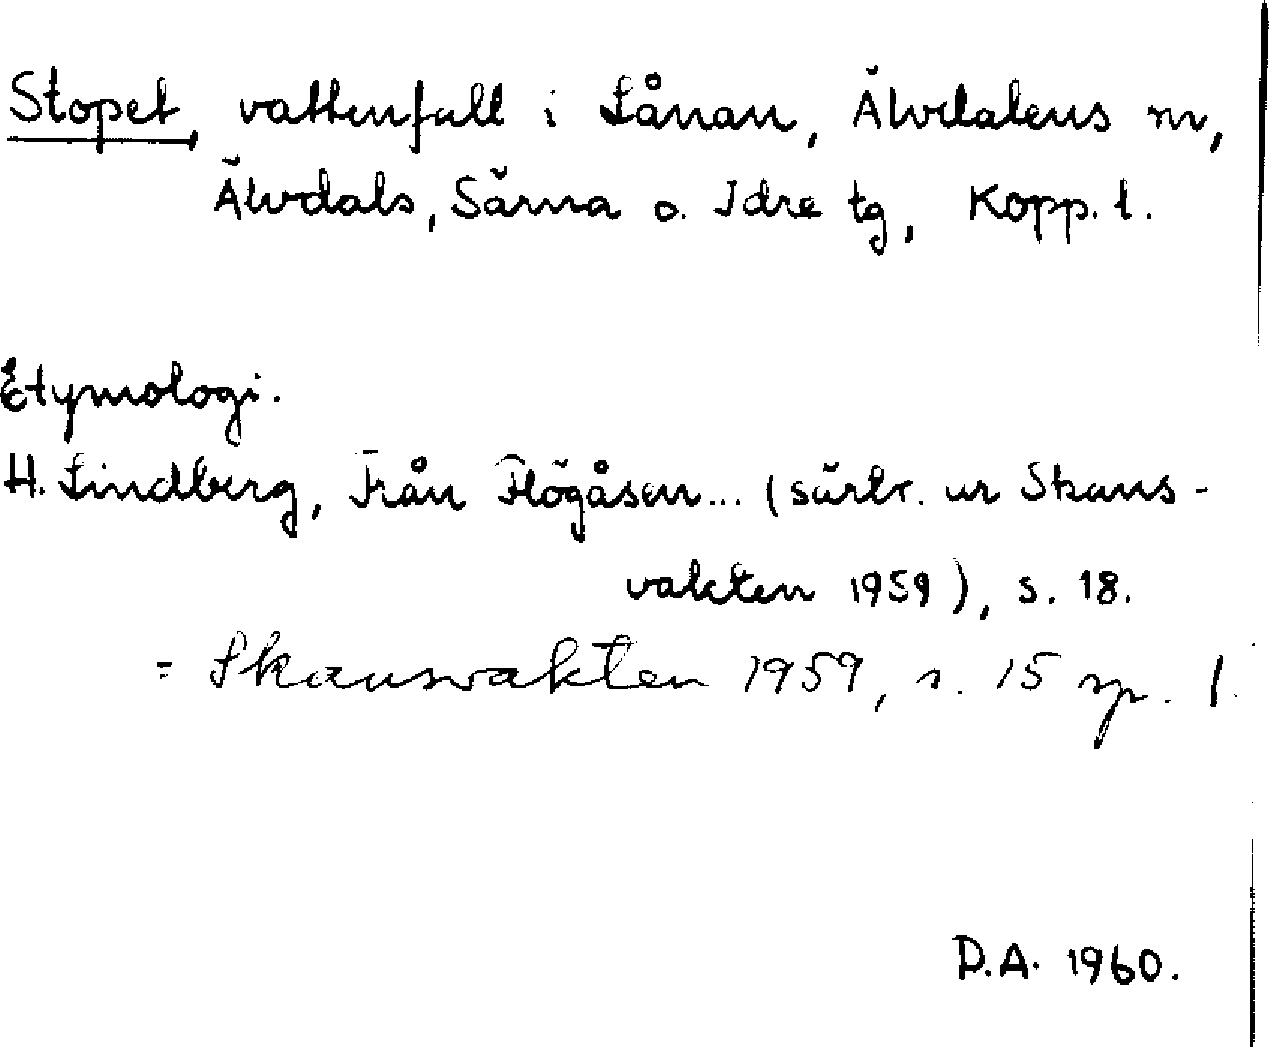 Stopet, vattenfall i Lånan, Älvdalens sn,
Älvdals, Särna o. Idre tg, Kopp. l.
Etymologi.
H. Lindberg, Från Flögåsen... (särtr. ur Skans-
vakten 1959), s. 18.
= Skansvakten 1959, s. 15 sp. 1.
D.A. 1960.